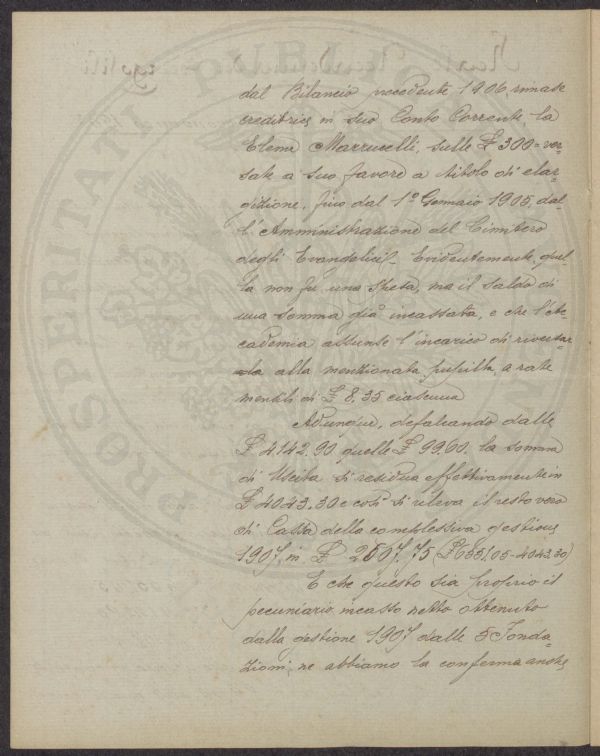 dal Bilancio precedente 1906, rimase
creditrice in suo Conto Corrente, la
Elena Marzucelli, sulle £ 300= ver-
sate a suo favore a titolo di elar-
gizione, fino dal 1º Gennaio 1905, dal-
l'Amministrazione del Cimitero
degli Evangelici. Evidentemente, quel-
la non fu una spesa, ma il saldo di
una somma già incassata, e che l'Ac-
cademia assunse l'incarico di riversar-
la alla menzionata pupilla, a rate
mensili di £ 8,35 ciascuna
Adunque, defalcando dalle
£ 4142.90 quelle £ 99.60 la somma
di Uscita si residua effettivamente in
£ 4043.30 e così si rileva il resto vero
di Cassa della complessiva gestione
1907, in £ 2507.75 (£ 6551.05-4043.30)
E che questo sia proprio il
pecuniario incasso netto ottenuto
dalla gestione 1907 dalle 5 Fonda-
zioni, ne abbiamo la conferma anche
PROSPERITATI